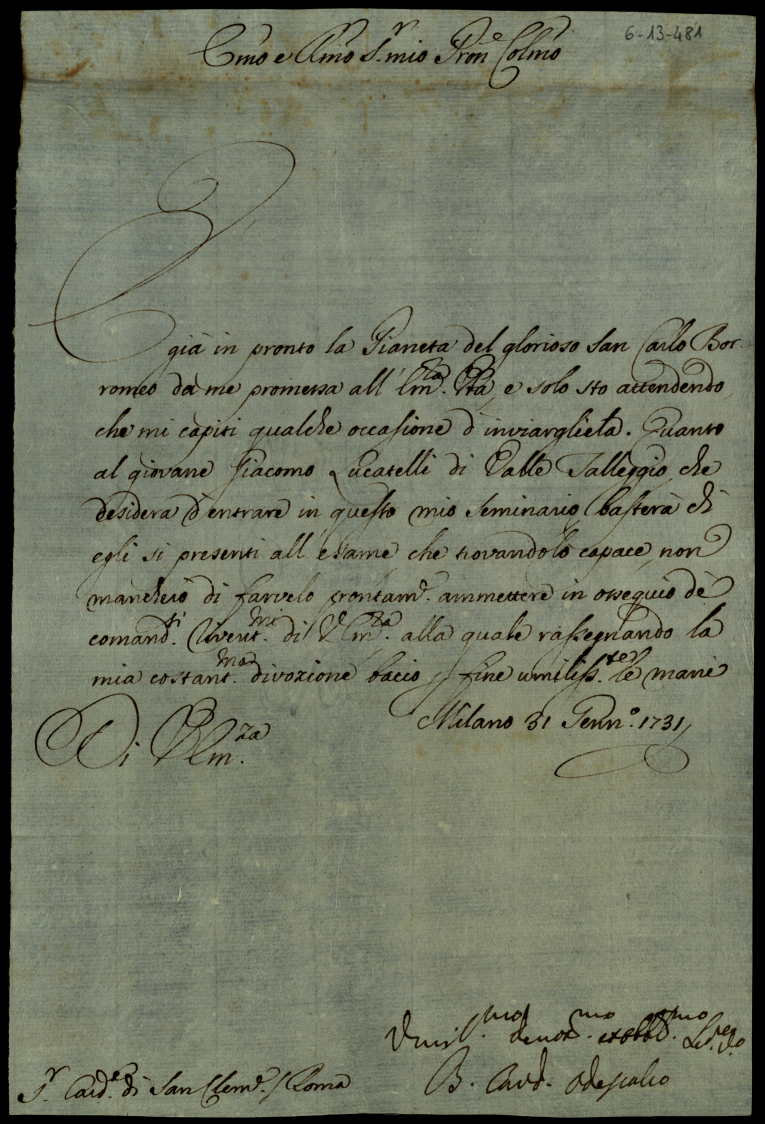 6-13-481
Emo e Rmo S.r mio Pron.e Colmo
È già in pronto la Pianeta del glorioso San Carlo Bor-
romeo da me promessa all' Em.za Vra, e solo sto attendendo,
che mi capiti qualche occasione d'inviargliela. Quanto
al giovane Giacomo Lucatelli di Valle Talleggio, che
desidera d'entrare in questo mio Seminario, basterà ch'
egli si presenti all'esame che trovandolo capace, non
mancherò di farvelo prontam.e ammettere in ossequio de'
comand.ti rivent.mi di V. Em.za alla quale rassegnando la
mia costant.ma divozione bacio / fine umiliss.te le mani
Milano 31 Genn.o 1731
Di V. Em.za
S.r Card.e di San Clem.e / Roma
Umil.mo devot.mo et obbl.mo
B. Card. Odescalco